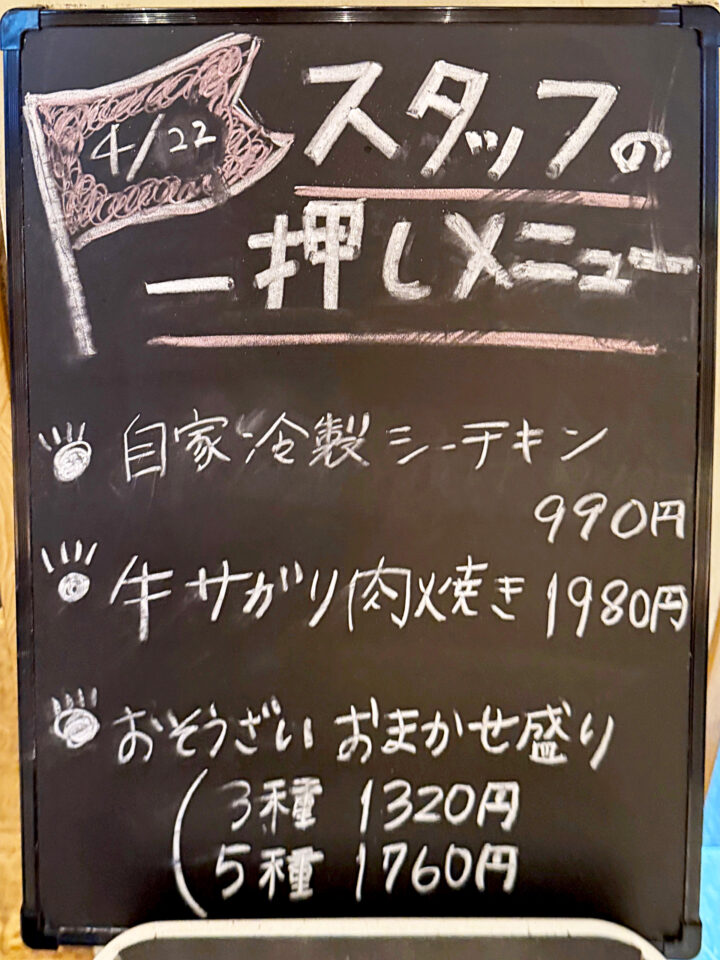 4/22
スタッフの
一押しメニュー
自家冷製シーチキン
990円
牛サガリ肉焼き 1980円
おそうざい おまかせ盛り
3種 1320円
5種 1760円